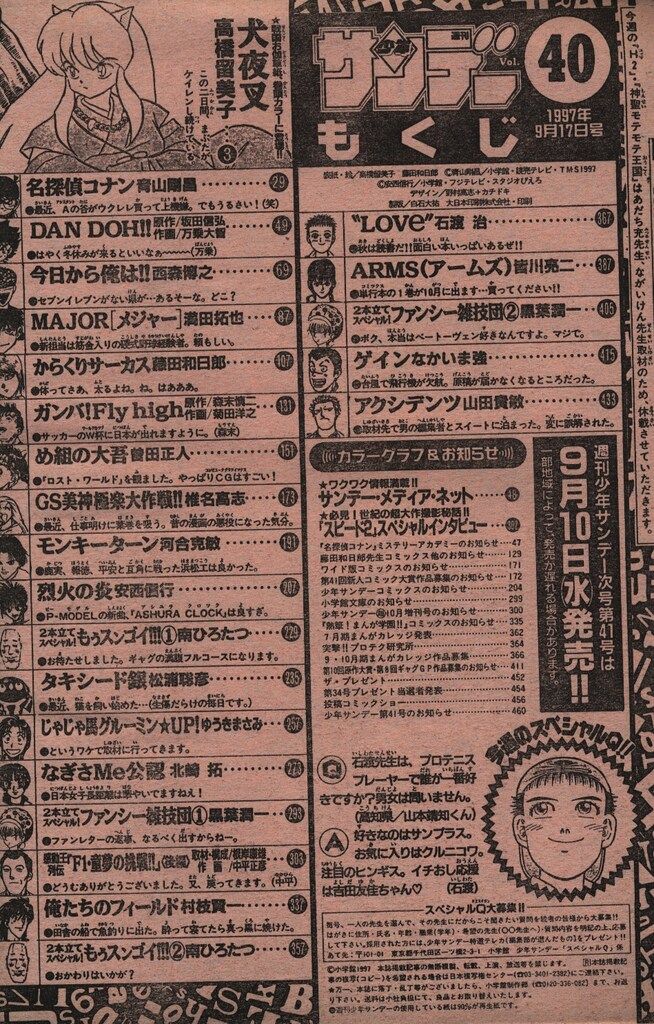 犬夜叉
高橋留美子…3
週刊
少年
サンデー
Vol.
40
1997年
9月17日号
もくじ
名探偵コナン 青山剛昌…29
DAN DOH!! 原作/坂田信弘 作画/万乗大智…49
●はやく冬休みが来るといいなぁ──(万乗)
今日から俺は!! 西森博之…69
●セブンイレブンがない県が…あるそーな。どこ?
MAJOR[メジャー]満田拓也…87
からくりサーカス 藤田和日郎…107
●休ってさあ、太るよね。ね。はあああ。
ガンバ!Fly high 原作/森末慎二 作画/菊田洋之…131
●サッカーのW杯に日本が出れますように。(森末)
め組の大吾 曽田正人…151
●「ロスト・ワールド」を観ました。やっぱりCGはすごい!
GS美神極楽大作戦!! 椎名高志…173
●最近、仕事明けに葉巻を吸う。昔の漫画の悪役になった気分。
モンキーターン 河合克敏…191
烈火の炎 安西信行…207
●P-MODELの新曲、「ASHURA CLOCK」は良すぎ。
2本立てスペシャル! もぅスンゴイ!!!① 南ひろたつ…229
●お待たせしました。ギャグの満腹フルコースになります。
タキシード銀 松浦聡彦…235
●最近、猫を飼い始めた…(生傷だらけの毎日です。)
じゃじゃ馬グルーミン★UP! ゆうきまさみ…257
●というワケで取材に行ってきます。
なぎさMe公認 北崎 拓…273
2本立てスペシャル! ファンシー雑技団① 黒葉潤一…293
●ファンレターの返事、なるべく出すからねー。
「F1・童夢の挑戦!!」(後編) 作画/中平正彦…303
●どうもありがとうございました。又、戻ってきます。(中平)
俺たちのフィールド 村枝賢一…337
●田舎の船で魚釣りに出た。酔って寝てたら真っ黒に焼けた。
2本立てスペシャル! もぅスンゴイ!!!② 南ひろたつ…357
●おかわりはいかが?
"LOVe" 石渡 治…367
●秋は読書だ!!面白い本いっぱいあるぜ!!
ARMS(アームズ) 皆川亮二…387
●単行本の1巻が10月に出ます…買ってください!!
2本立てスペシャル! ファンシー雑技団② 黒葉潤一…405
●ボク、本当はベートーヴェン好きなんですよ。マジで。
ゲイン なかいま強…415
●台風で飛行機が欠航。原稿が届かなくなるところだった。
アクシデンツ 山田貴敏…433
●取材先で男の編集者とスイートに泊まった。変に誤解された。
カラーグラフ&お知らせ
★ワクワク情報満載!!
サンデー・メディア・ネット
★必見!世紀の超大作撮影秘話!!
「スピード2」スペシャルインタビュー
『名探偵コナン』ミステリーアカデミーのお知らせ…47
藤田和日郎先生コミックス他のお知らせ…129
ワイド版コミックスのお知らせ…171
第41回新人コミック大賞作品募集のお知らせ…172
少年サンデーコミックスのお知らせ…204
小学館文庫のお知らせ…299
少年サンデー超10月増刊号のお知らせ…300
『熱祭!まんが学園!!』コミックスのお知らせ…335
7月期まんがカレッジ発表…362
突撃!!プロテク研究所…364
9・10月期まんがカレッジ作品募集…366
第10回原作大賞・第8回ギャグGP作品募集のお知らせ…411
ザ・プレゼント…452
第34号プレゼント当選者発表…454
投稿コミックショー…456
少年サンデー第41号のお知らせ…460
週刊少年サンデー次号第41号は
9月10日(水)発売!!
一部地域によって発売が遅れる場合があります。
今週の『H2』、『神聖モテモテ王国』はあだち充先生、ながいけん先生取材のため、休載させていただきます。
今週のスペシャルQ!!
Q 石渡先生は、プロテニスプレーヤーで誰が一番好きですか?男女は問いません。
(高知県/山本靖知くん)
A 好きなのはサンプラス。お気に入りはクルニコワ。注目のヒンギス。イチおし応援は吉田友佳ちゃん♡(石渡)
スペシャルQ大募集!!
©小学館1997